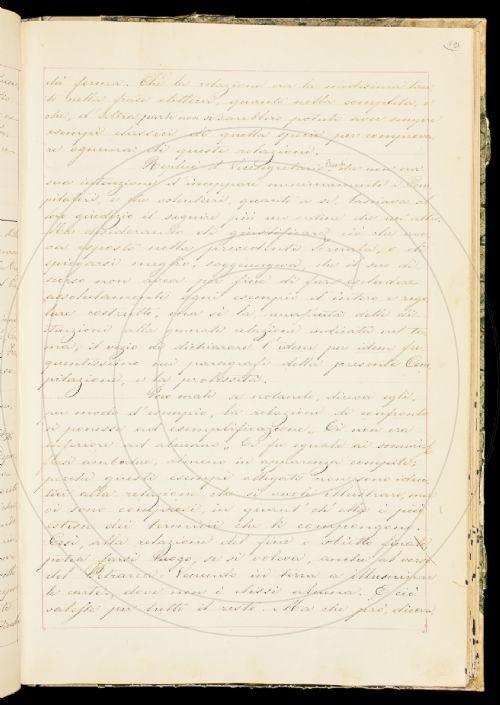 da forma. Chè la relazione era la medesima tan
to nella frase elettica, quanto nella completa, e
che, d'altra parte non si sarebbero potuti aver sempre
esempi classici di quella specie per comprova
re ognuna di queste relazioni.
Replicò il Vicesegretario che non era
sua intenzione d'inceppare menomamente i Com
pilatori, e che volentieri, quanto a sè, lasciava al
loro giudizio il seguire più un ordine che un'altro.
Ma desiderando di giustificare ciò che ave
va esposto nella precedente Tornata, e di
spiegarsi meglio, soggiungeva, che il suo di
scorso non avea per fine di fare escludere
assolutamente ogni esempio d'intero e rego
lare costrutto, ma sì la
tuazioni alle generali relazioni indicate nel te
ma, il vizio di dichiarare l'idem per idem fre
quentissimo nei paragrafi della presente Com
pilazione, e la prolissità.
Poco male se notando, diceva egli,
per modo d'esempio, la relazione di confronto
si ponesse ad esemplificazione, Ei non era
inferiore ad alcuno, Ei fu eguale ai sommi;
frasi ambedue, almeno in apparenza compite;
perchè questi esempi allegati non sono iden
tici alla relazione che si vuole illustrare, ma
vi sono compresi, in quant' ch'ella è
dei termini che li compongono.
Così, alla relazione del fine o obietto finale
potea farsi luogo, se si voleva, anche al verso
del Petrarca: Venendo in terra a illuminar
le carte, dove non è elissi alcuna. E ciò
valesse per tutto il resto. Ma che però, diceva